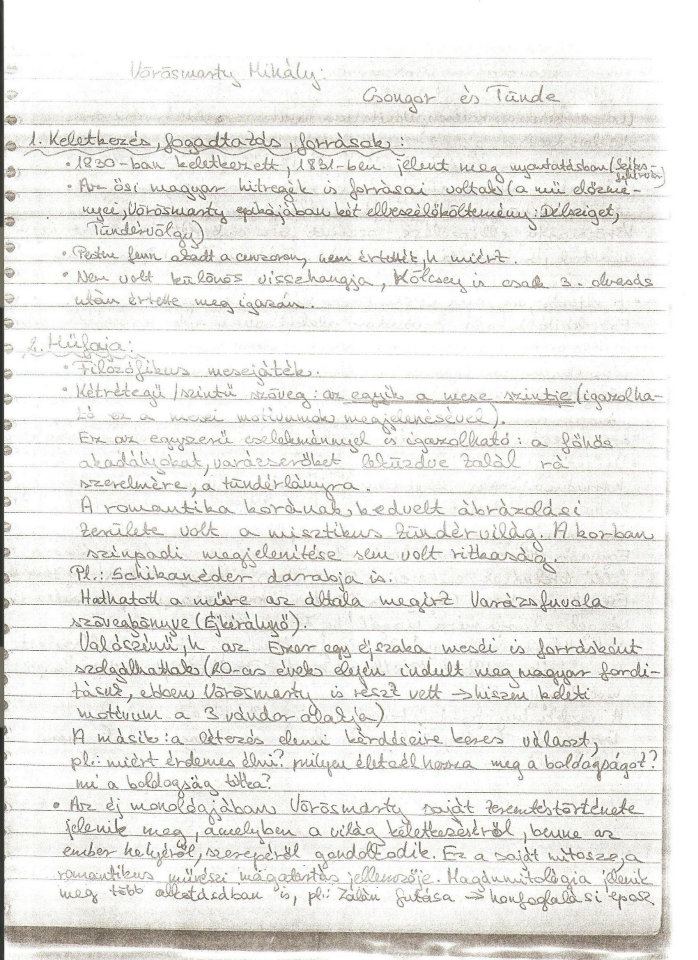 Vörösmarty Mihály:
Csongor és Tünde
1. Keletkezés, fogadtatás, források:
• 1830-ban keletkezett, 1831-ben jelent meg nyomtatásban (Székes-
fehérvár)
• Az ősi magyar hitregék is forrásai voltak (a mű előzmé-
nyei, Vörösmarty epikájában két elbeszélőköltemény: Délsziget,
Tündérvölgy)
• Pesten fenn akadt a cenzoron, nem értették, h miért.
• Nem volt különös visszhangja, Kölcsey is csak 3. olvasás
után értette meg igazán.
2. Műfaja:
• Filozófikus mesejáték.
• Kétrétegű/szintű szöveg: az egyik a mese szintje (igazolha-
tó ez a mesei motívumok megjelenésével).
Ez az egyszerű cselekménnyel is igazolható: a főhős
akadályokat, varázserőket leküzdve talál rá
szerelmére, a tündérlányra.
A romantika korának kedvelt ábrázolási
területe volt a misztikus tündérvilág. A korban
színpadi megjelenítése sem volt ritkaság.
Pl.: Schikanéder darabja is.
Hathatott a műre az általa megírt Varázsfuvola
szövegkönyve (Éjkirálynő).
Valószínű, h az Ezer egy éjszaka meséi is forrásként
szolgálhattak (20-as évek elején indult meg magyar fordí-
tásuk, ebben Vörösmarty is részt vett → hiszen keleti
motívum a 3 vándor alakja)
A másik: a létezés elemi kérdéseire keres választ,
pl.: miért érdemes élni? milyen életcél hozza meg a boldogságot?
mi a boldogság titka?
• Az éj monológjában Vörösmarty saját teremtéstörténete
jelenik meg, amelyben a világ keletkezéséről, benne az
ember helyéről, szerepéről gondolkodik. Ez a saját mítosz, a
romantikus művészi magatartás jellemzője. Magánmitológia jelenik
meg több alkotásában is, pl: Zalán futása → honfoglalási eposz